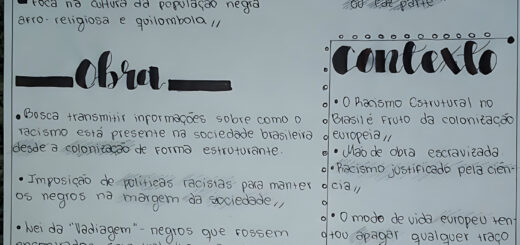 • Foca na cultura da população negra
afro-religiosa e quilombola //
Obra
• Bosca transmitir informações sobre como o
racismo está presente na sociedade brasileira
desde a colonização de forma estruturante.
• Imposição de políticas racistas para manter
os negros na margem da sociedade //
• Lei da "Vadiagem" - negros que fossem
ou
parte
Contexto
• O Racismo Estrutural no
Brasil é Fruto da colonização
europeia //
• Mão de obra escravizada
• Racismo justificado pela ciên-
cia //
• O modo de vida europeu ten-
tou apagar qualquer traço